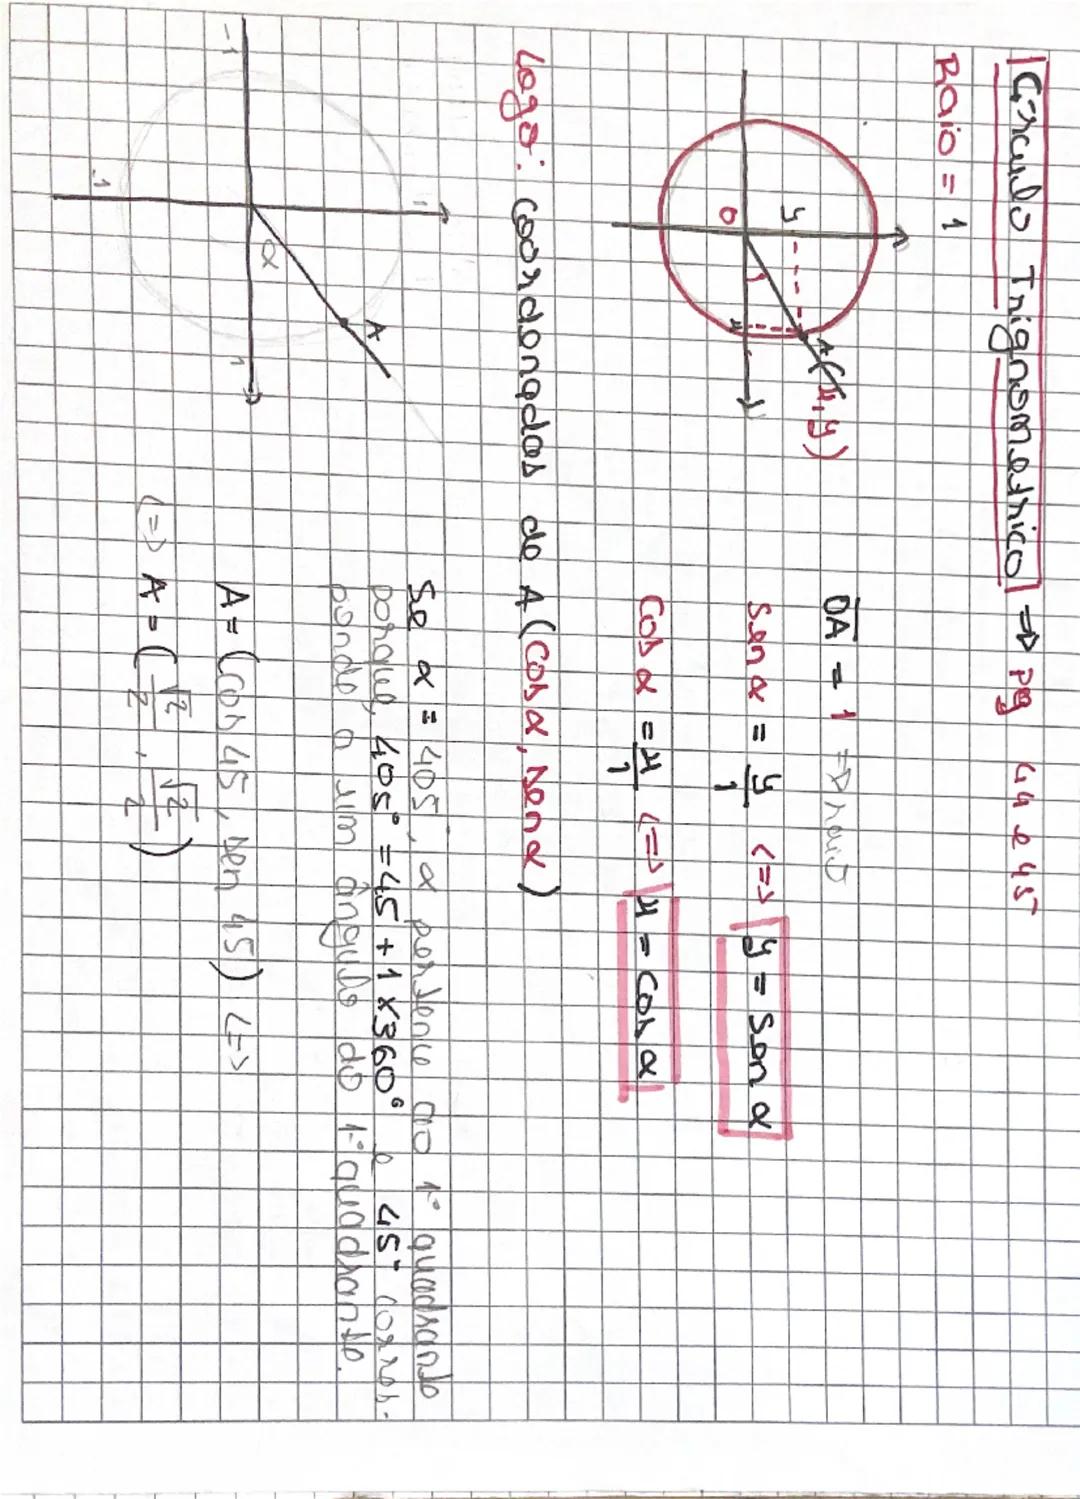 Círculo Trignometrico → pg 44 e 45
Raio = 1
y
A(x,y)
O
x
OA = 1 => raio
Sen α = y/1 <=> y = sen α
Cos α = x/1 <=> x = cos α
Logo: coordenadas de A (cos α, sen α)
1
-1
-1
1
α
A
Se α = 405°, α pertence ao 1º quadrante
porque, 405° = 45 + 1 x 360° e 45° corres-
ponde a um ângulo do 1º quadrante.
A = (cos 45, sen 45) <=>
<=> A = (√2/2, √2/2)